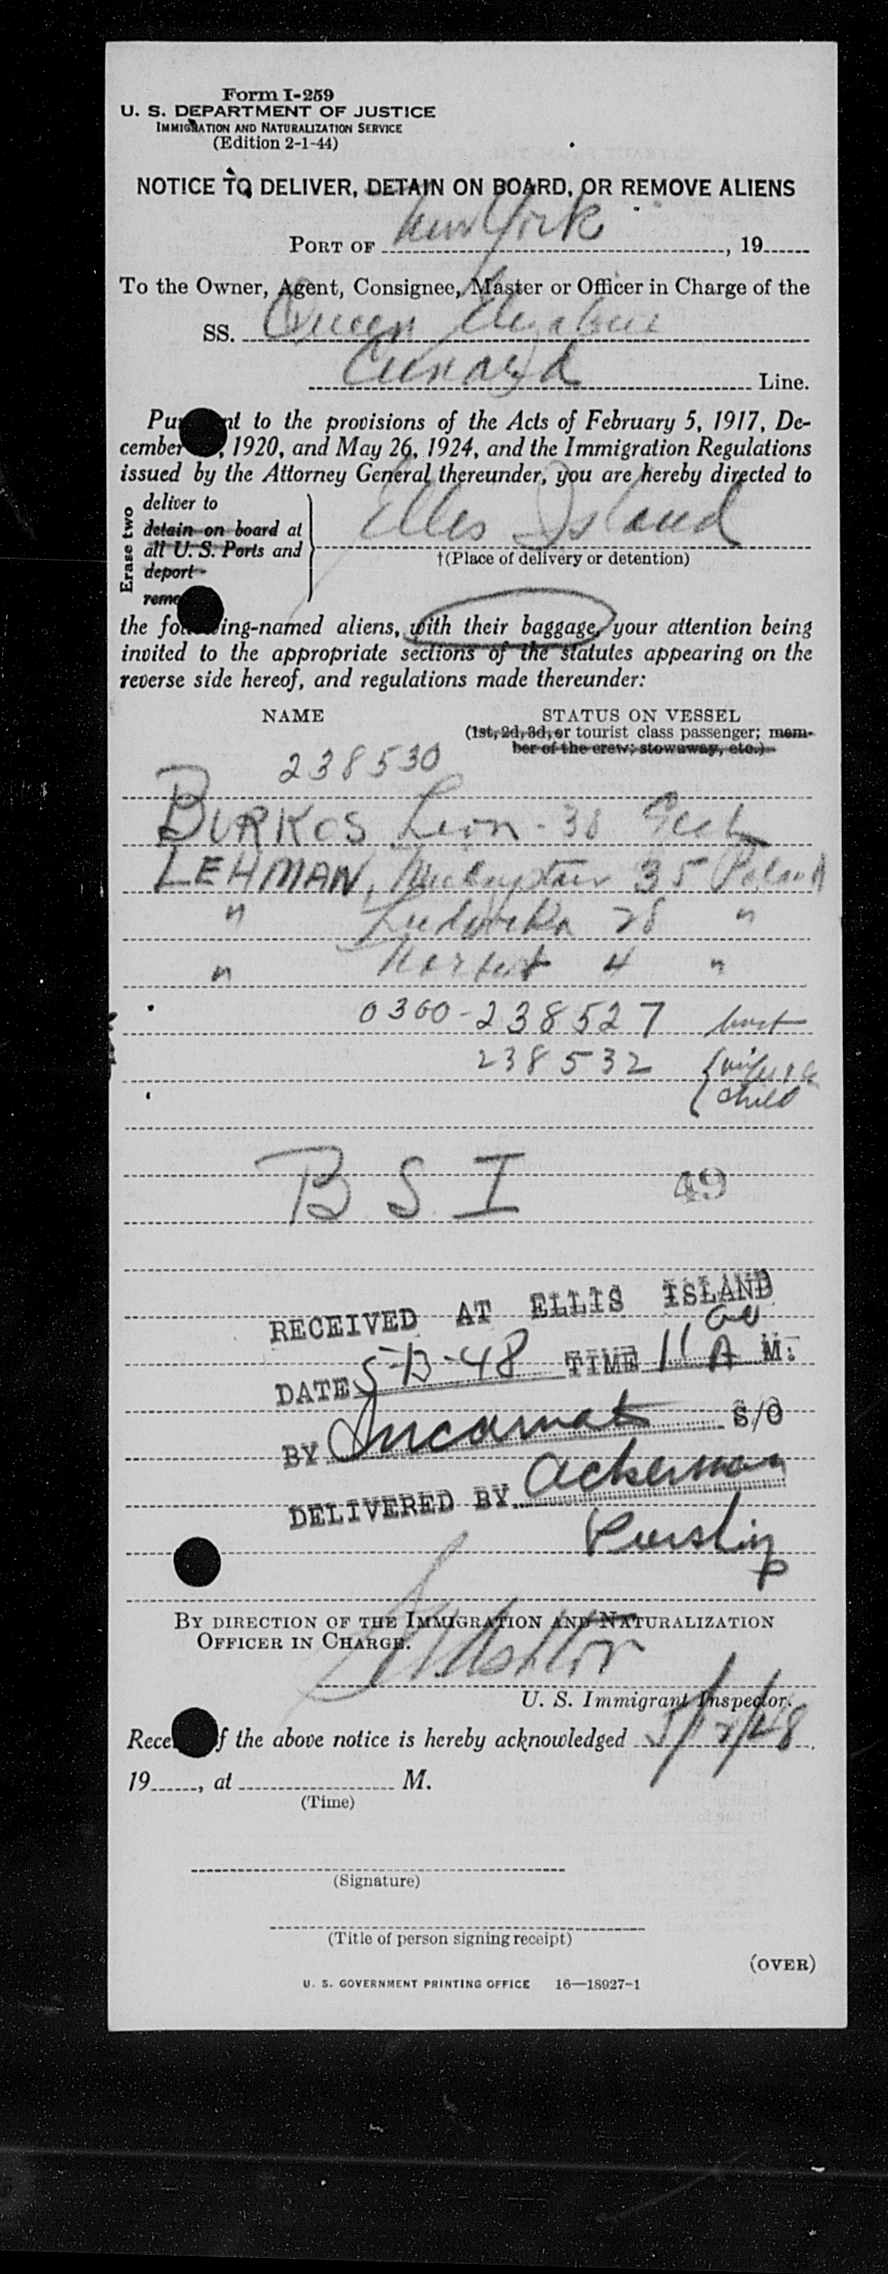 Form I-259
U. S. DEPARTMENT OF JUSTICE
IMMIGRATION AND NATURALIZATION SERVICE
(Edition 2-1-44)
NOTICE TO DELIVER, DETAIN ON BOARD, OR REMOVE ALIENS
PORT OF New York, 19
To the Owner, Agent, Consignee, Master or Officer in Charge of the
SS. Queen Elizabeth
Cunard Line.
to the provisions of the Acts of February 5, 1917, De-
cember , 1920, and May 26, 1924, and the Immigration Regulations
issued by the Attorney General thereunder, you are hereby directed to
Erase two
deliver to
detain on board at
all U. S. Ports and
deport
Ellis Island
†(Place of delivery or detention)
the following-named aliens, with their baggage, your attention being
invited to the appropriate sections of the statutes appearing on the
reverse side hereof, and regulations made thereunder:
NAME STATUS ON VESSEL
(1st, 2d, 3d, or tourist class passenger; mem-
ber of the crew; stowaway, etc.)
238530
BURKOS Leon - 38
LEHMAN, 35 Poland
" Ludwika 28 "
" Norbert 4 "
0300-238527
238532 { wife &
child
B S I 49
RECEIVED AT ELLIS ISLAND
DATE 5-13-48 TIME 11 00 A M.
BY S/O
DELIVERED BY Ackerman
BY DIRECTION OF THE IMMIGRATION AND NATURALIZATION
OFFICER IN CHARGE.
U. S. Immigrant Inspector.
of the above notice is hereby acknowledged 5/12/48
19, at M.
(Time)
(Signature)
(Title of person signing receipt)
(OVER)
U. S. GOVERNMENT PRINTING OFFICE 16—18927-1